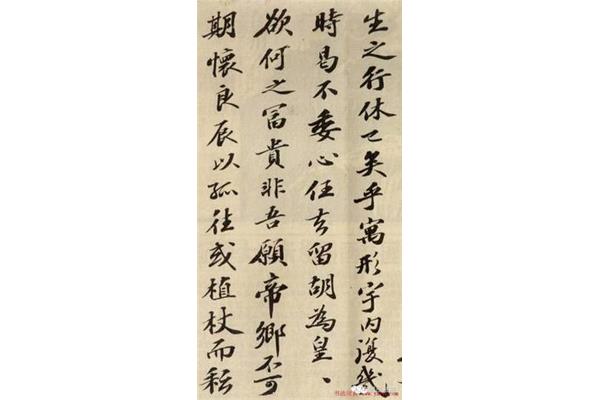 生之行休已矣乎寓形宇内復幾
時曷不委心任去留胡為皇、
欲何之冨貴非吾願帝鄉不可
期懷良辰以孤往或植杖而耘